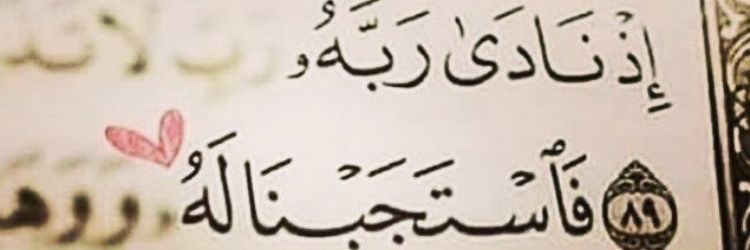 إِذْ نَادَىٰ رَبَّهُۥ رَبِّ لَا
﴿٨٩﴾ فَٱسْتَجَبْنَا لَهُۥ